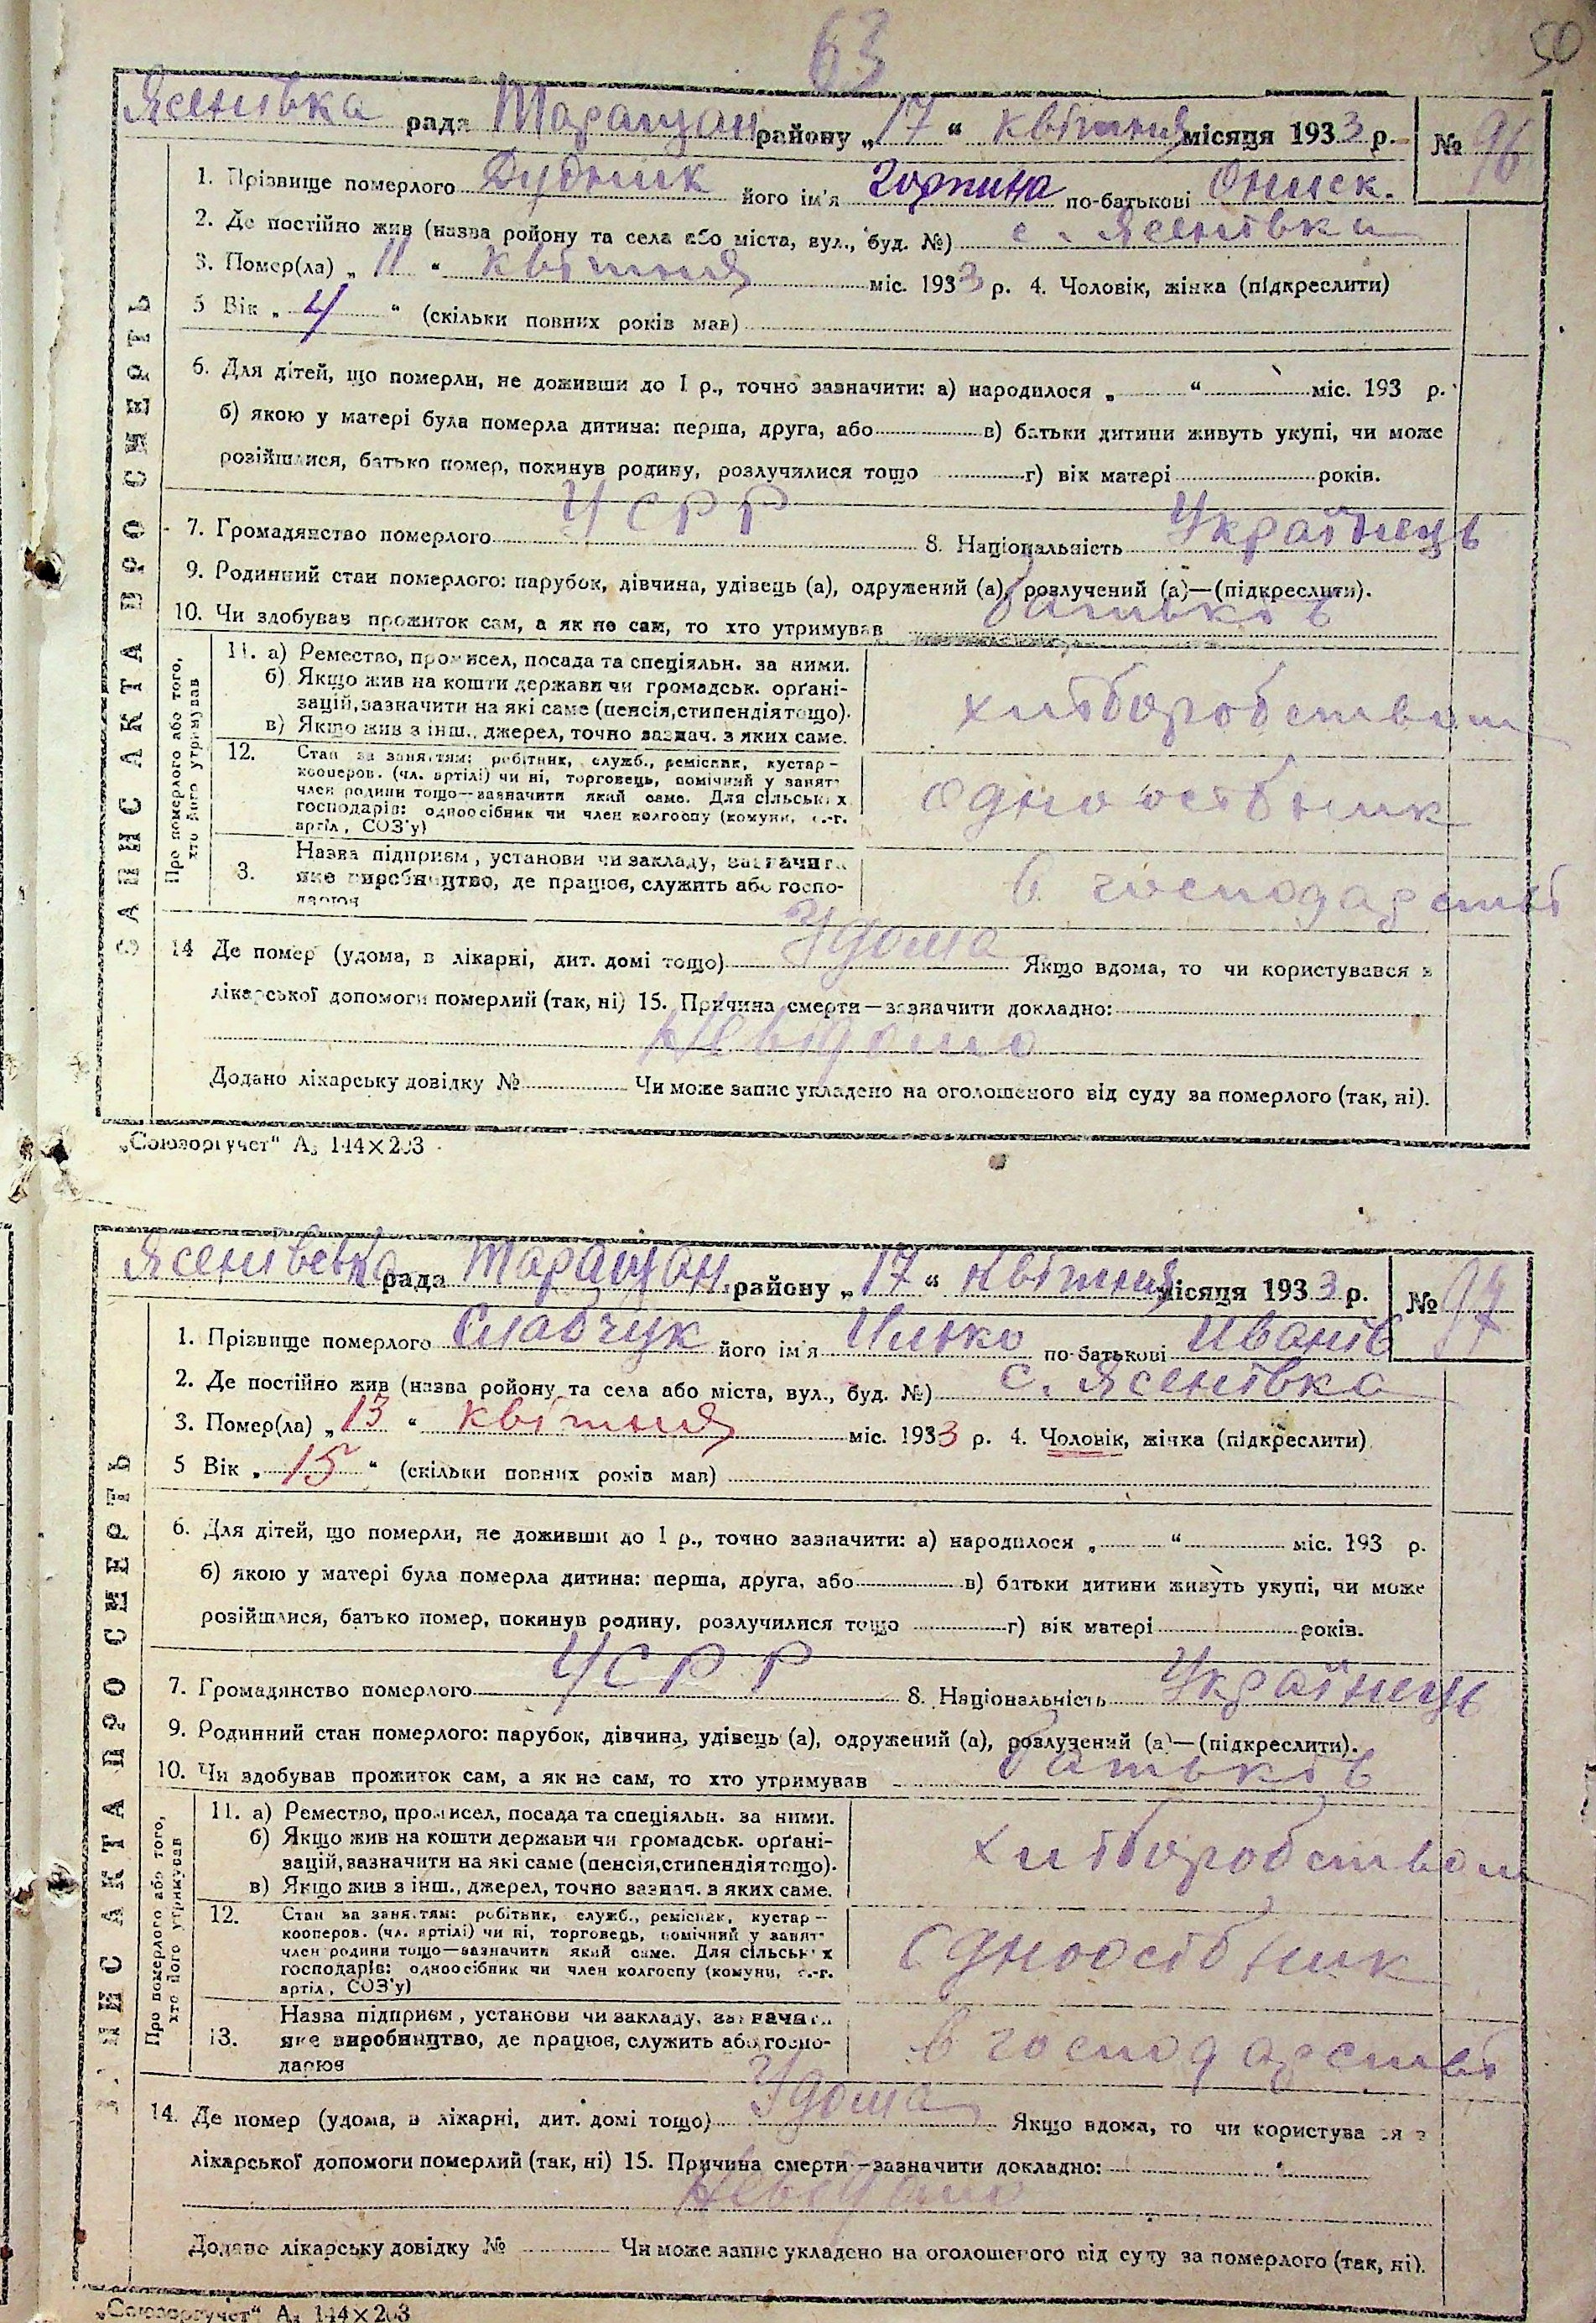 63
50
Ясенівка рада Таращан району „17“ квітня місяця 1933 р. № 96
1. Прізвище померлого Дудник його ім'я Горпина по-батькові Ониск.
2. Де постійно жив (назва ройону та села або міста, вул., буд. №) с. Ясенівка
3. Помер(ла) „11“ квітня міс. 1933 р. 4. Чоловік, жінка (підкреслити)
5 Вік „4“ (скільки повних років мав)
6. Для дітей, що померли, не доживши до 1 р., точно зазначити: а) народилося „ “ міс. 193 р.
б) якою у матері була померла дитина: перша, друга, або в) батьки дитини живуть укупі, чи може
розійшлися, батько помер, покинув родину, розлучилися тощо г) вік матері років.
7. Громадянство померлого УСРР 8. Національність Українець
9. Родинний стан померлого: парубок, дівчина, удівець (а), одружений (а), розлучений (а)—(підкреслити).
10. Чи здобував прожиток сам, а як не сам, то хто утримував батьків
ЗАПИС АКТА ПРО СМЕРТЬ
Про померлого або того, хто його утримував
11. а) Ремество, промисел, посада та спеціяльн. за ними.
б) Якщо жив на кошти держави чи громадськ. орґані-
зацій, зазначити на які саме (пенсія, стипендія тощо).
в) Якщо жив з інш., джерел, точно зазнач. з яких саме.
хліборобством
12. Стан за занятям: робітник, служб., ремісник, кустар—
кооперов. (чл. артілі) чи ні, торговець, помічний у занят
член родини тощо—зазначити який саме. Для сільських
господарів: одноосібник чи член колгоспу (комуни, с.-г.
артіл, СОЗ'у)
одноосібник
3. Назва підприєм, установи чи закладу, зазначити
яке виробництво, де працює, служить або госпо-
дарює
в господарстві
14 Де помер (удома, в лікарні, дит. домі тощо) Удома Якщо вдома, то чи користувався з
лікарської допомоги померлий (так, ні) 15. Причина смерти—зазначити докладно:
Невідомо
Додано лікарську довідку № Чи може запис укладено на оголошеного від суду за померлого (так, ні).
„Союзоргучет“ А₅ 144×203
Ясенівська рада Таращан району „17“ квітня місяця 1933 р. № 97
1. Прізвище померлого Славчук його ім'я Илько по-батькові Иванів
2. Де постійно жив (назва ройону та села або міста, вул., буд. №) с. Ясенівка
3. Помер(ла) „13“ квітня міс. 1933 р. 4. Чоловік, жінка (підкреслити)
5 Вік „15“ (скільки повних років мав)
6. Для дітей, що померли, не доживши до 1 р., точно зазначити: а) народилося „ “ міс. 193 р.
б) якою у матері була померла дитина: перша, друга, або в) батьки дитини живуть укупі, чи може
розійшлися, батько помер, покинув родину, розлучилися тощо г) вік матері років.
7. Громадянство померлого УСРР 8. Національність Українець
9. Родинний стан померлого: парубок, дівчина, удівець (а), одружений (а), розлучений (а)—(підкреслити).
10. Чи здобував прожиток сам, а як не сам, то хто утримував батьків
ЗАПИС АКТА ПРО СМЕРТЬ
Про померлого або того, хто його утримував
11. а) Ремество, промисел, посада та спеціяльн. за ними.
б) Якщо жив на кошти держави чи громадськ. орґані-
зацій, зазначити на які саме (пенсія, стипендія тощо).
в) Якщо жив з інш., джерел, точно зазнач. з яких саме.
хліборобством
12. Стан за занятям: робітник, служб., ремісник, кустар—
кооперов. (чл. артілі) чи ні, торговець, помічний у занят
член родини тощо—зазначити який саме. Для сільських
господарів: одноосібник чи член колгоспу (комуни, с.-г.
артіл, СОЗ'у)
одноосібник
13. Назва підприєм, установи чи закладу, зазначити
яке виробництво, де працює, служить або госпо-
дарює
в господарстві
14. Де помер (удома, в лікарні, дит. домі тощо) Удома Якщо вдома, то чи користува ся з
лікарської допомоги померлий (так, ні) 15. Причина смерти—зазначити докладно:
Невідомо
Додано лікарську довідку № Чи може запис укладено на оголошеного від суду за померлого (так, ні).
„Союзоргучет“ А₅ 144×203